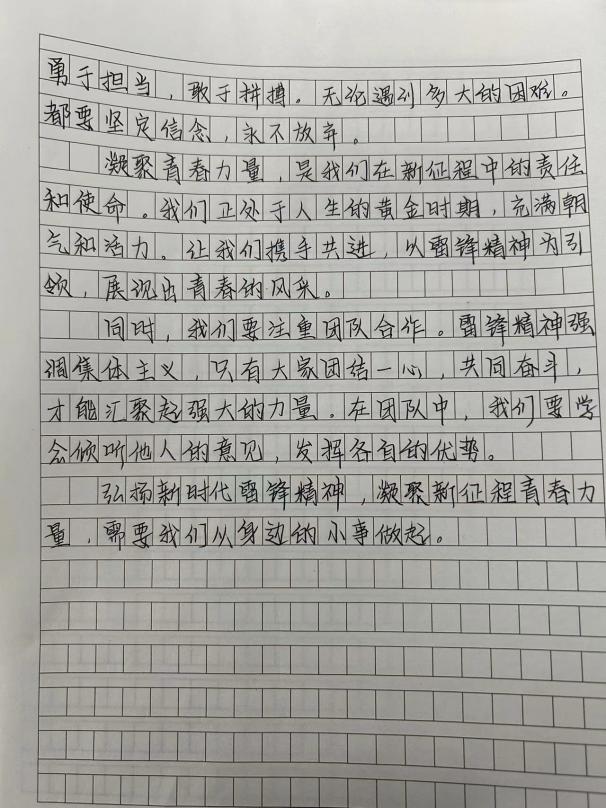 勇于担当，敢于拼搏。无论遇到多大的困难。
都要坚定信念，永不放弃。
凝聚青春力量，是我们在新征程中的责任
和使命。我们正处于人生的黄金时期，充满朝
气和活力。让我们携手共进，以雷锋精神为引
领，展现出青春的风采。
同时，我们要注重团队合作。雷锋精神强
调集体主义，只有大家团结一心，共同奋斗，
才能汇聚起强大的力量。在团队中，我们要学
会倾听他人的意见，发挥各自的优势。
弘扬新时代雷锋精神，凝聚新征程青春力
量，需要我们从身边的小事做起。